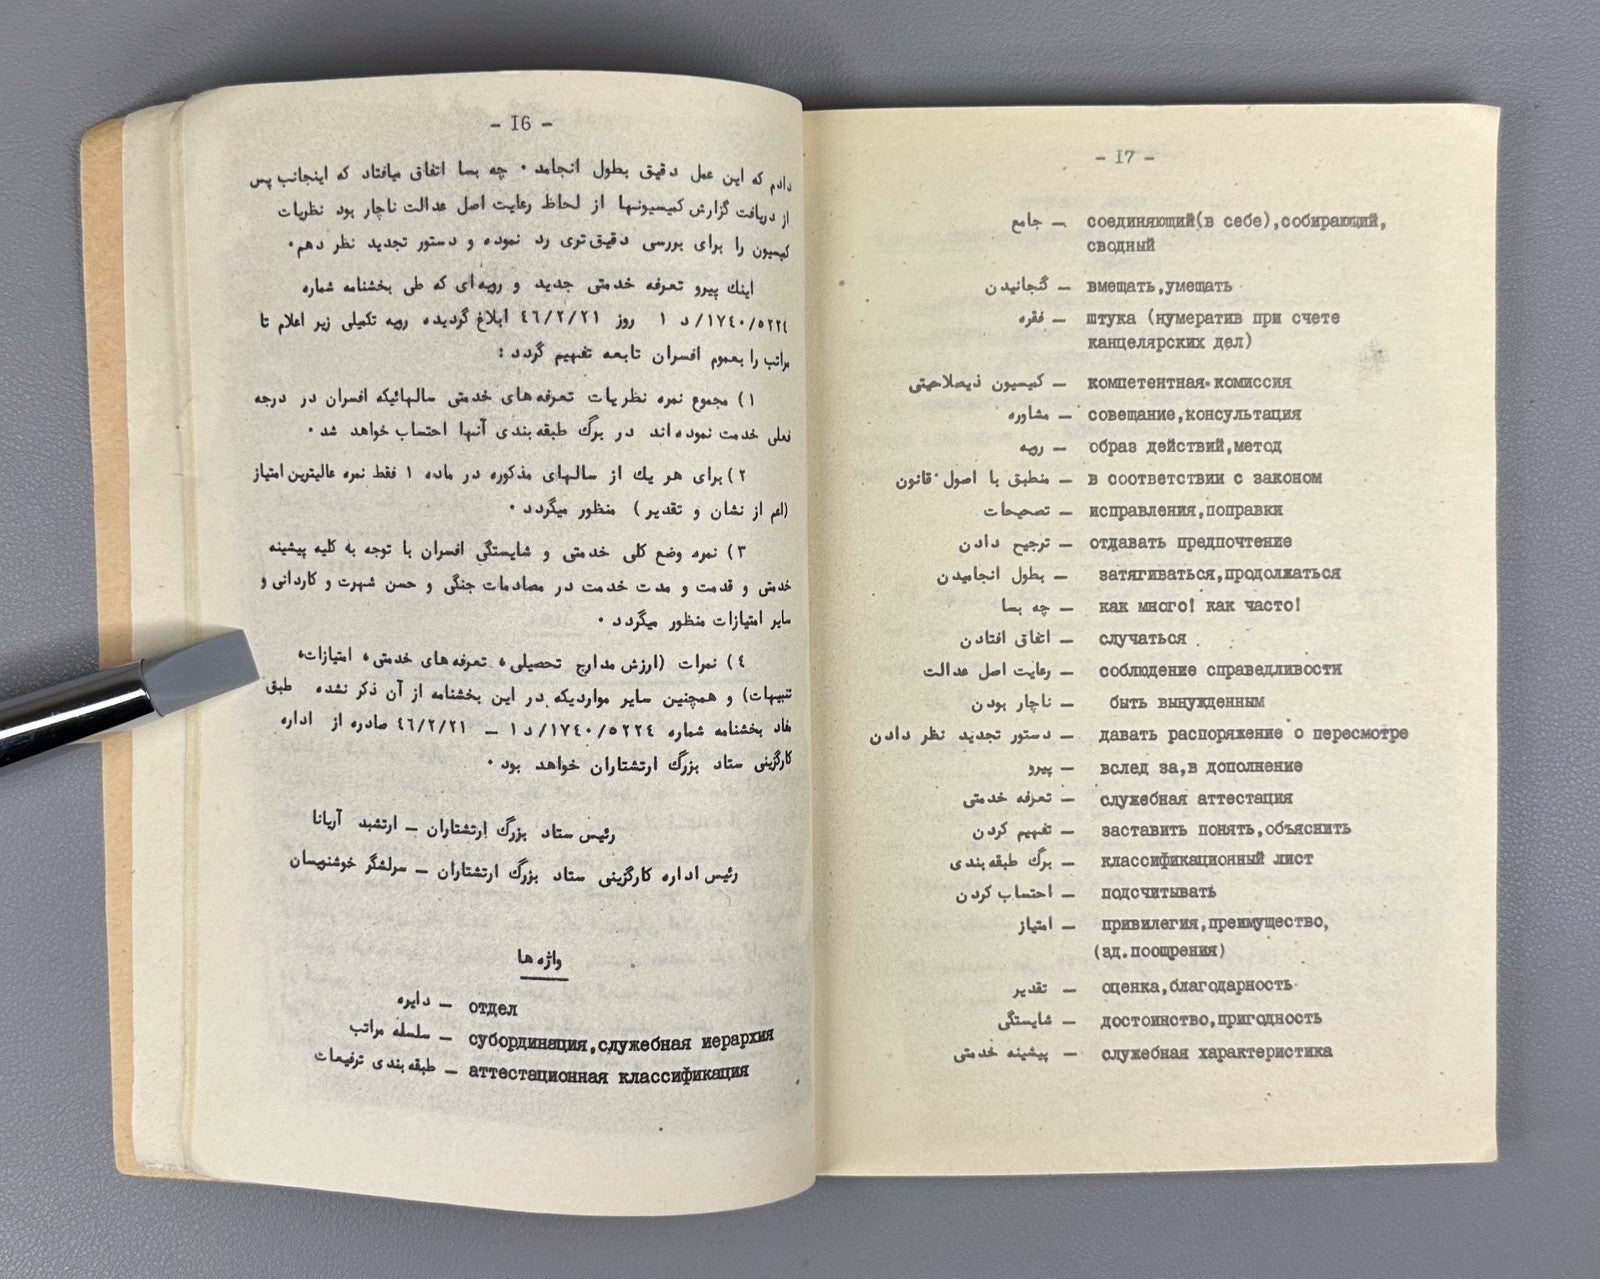 - I6 -
دادم که این عمل دقیق بطول انجامد. چه بسا اتفاق میافتاد که اینجانب پس
از دریافت گزارش کمیسیونها از لحاظ رعایت اصل عدالت ناچار بود نظریات
کمیسیون را برای بررسی دقیق‌تری رد نموده و دستور تجدید نظر دهم.
اینك پیرو تعرفه خدمتی جدید و رویه‌ای که طی بخشنامه شماره
۱۷٤۰/٥۲۲٤/د ۱ روز ٤٦/۲/۲۱ ابلاغ گردیده رویه تکمیلی زیر اعلام تا
مراتب را بعموم افسران تابعه تفهیم گردد:
۱) مجموع نمره نظریات تعرفه‌های خدمتی سالهائیکه افسران در درجه
فعلی خدمت نموده‌اند در برگ طبقه‌بندی آنها احتساب خواهد شد.
۲) برای هر یك از سالهای مذکوره در ماده ۱ فقط نمره عالیترین امتیاز
(اعم از نشان و تقدیر) منظور میگردد.
۳) نمره وضع کلی خدمتی و شایستگی افسران با توجه به کلیه پیشینه
خدمتی و قدمت و مدت خدمت در مصادمات جنگی و حسن شهرت و کاردانی و
سایر امتیازات منظور میگردد.
٤) نمرات (ارزش مدارج تحصیلی، تعرفه‌های خدمتی، امتیازات،
تنبیهات) و همچنین سایر مواردیکه در این بخشنامه از آن ذکر نشده طبق
مفاد بخشنامه شماره ۱۷٤۰/٥۲۲٤/د ۱ – ٤٦/۲/۲۱ صادره از اداره
کارگزینی ستاد بزرگ ارتشتاران خواهد بود.
رئیس ستاد بزرگ ارتشتاران – ارتشبد آریانا
رئیس اداره کارگزینی ستاد بزرگ ارتشتاران – سرلشگر خوشنویسان
واژه‌ها
دایره – отдел
سلسله مراتب – субординация,служебная иерархия
طبقه‌بندی ترفیعات – аттестационная классификация
- I7 -
جامع – соединяющий(в себе),собирающий,
сводный
گنجانیدن – вмещать,умещать
فقره – штука (нумератив при счете
канцелярских дел)
کمیسیون ذیصلاحیتی – компетентная комиссия
مشاوره – совещание,консультация
رویه – образ действий,метод
منطبق با اصول قانون – в соответствии с законом
تصحیحات – исправления,поправки
ترجیح دادن – отдавать предпочтение
بطول انجامیدن – затягиваться,продолжаться
چه بسا – как много! как часто!
اتفاق افتادن – случаться
رعایت اصل عدالت – соблюдение справедливости
ناچار بودن – быть вынужденным
دستور تجدید نظر دادن – давать распоряжение о пересмотре
پیرو – вслед за,в дополнение
تعرفه خدمتی – служебная аттестация
تفهیم کردن – заставить понять,объяснить
برگ طبقه‌بندی – классификационный лист
احتساب کردن – подсчитывать
امتیاز – привилегия,преимущество,
(зд.поощрения)
تقدیر – оценка,благодарность
شایستگی – достоинство,пригодность
پیشینه خدمتی – служебная характеристика